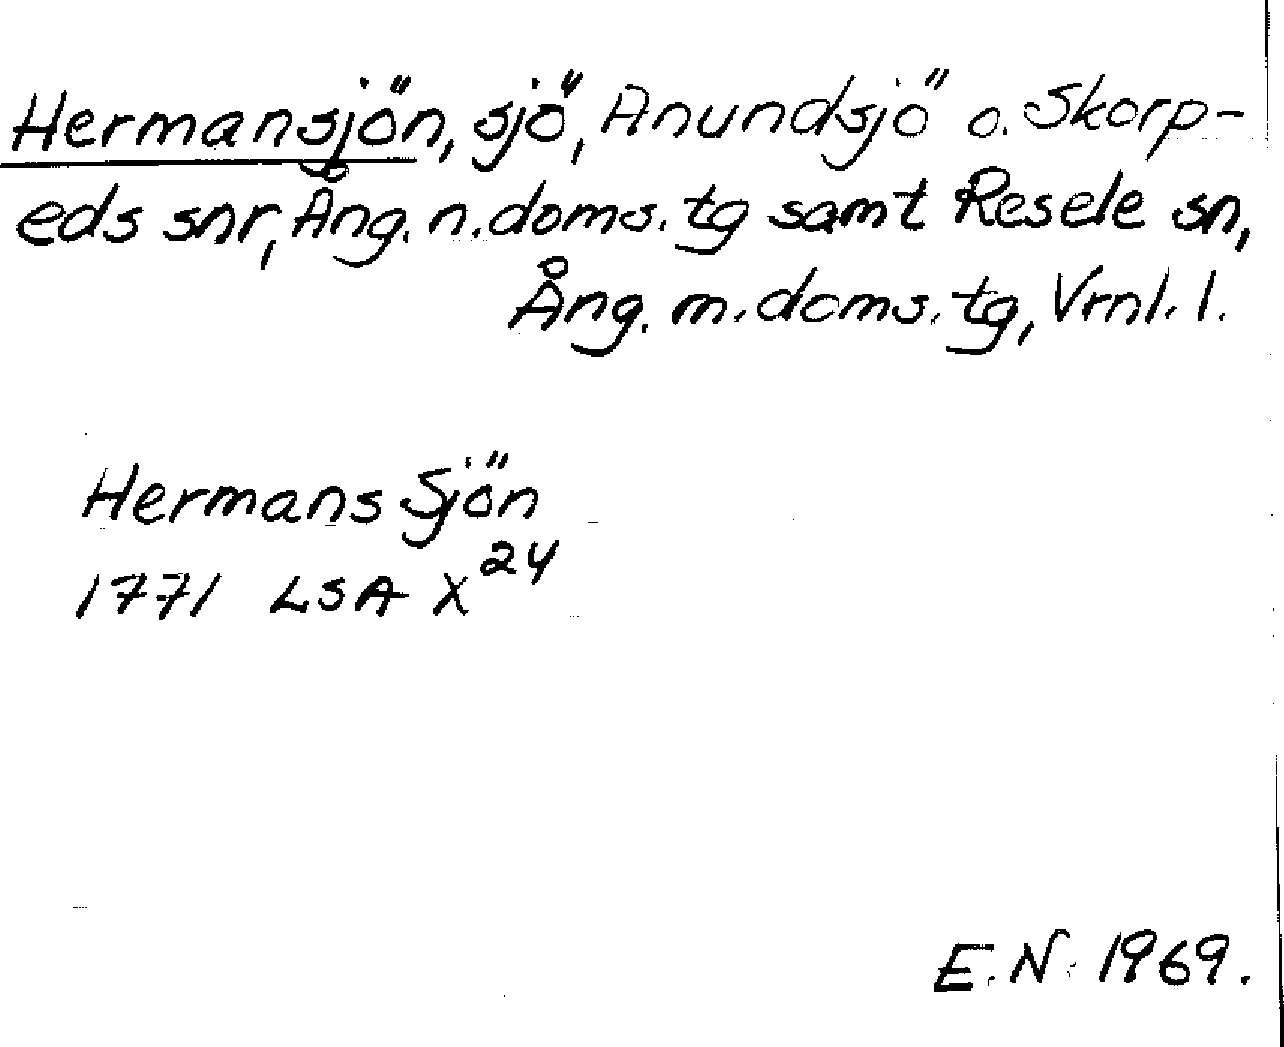 Hermansjön, sjö, Anundsjö o. Skorp-
eds snr, Ång. n. doms. tg samt Resele sn,
Ång. m. doms. tg, Vrnl. l.
Hermans Sjön
1771 LSA X²⁴
E. N. 1969.